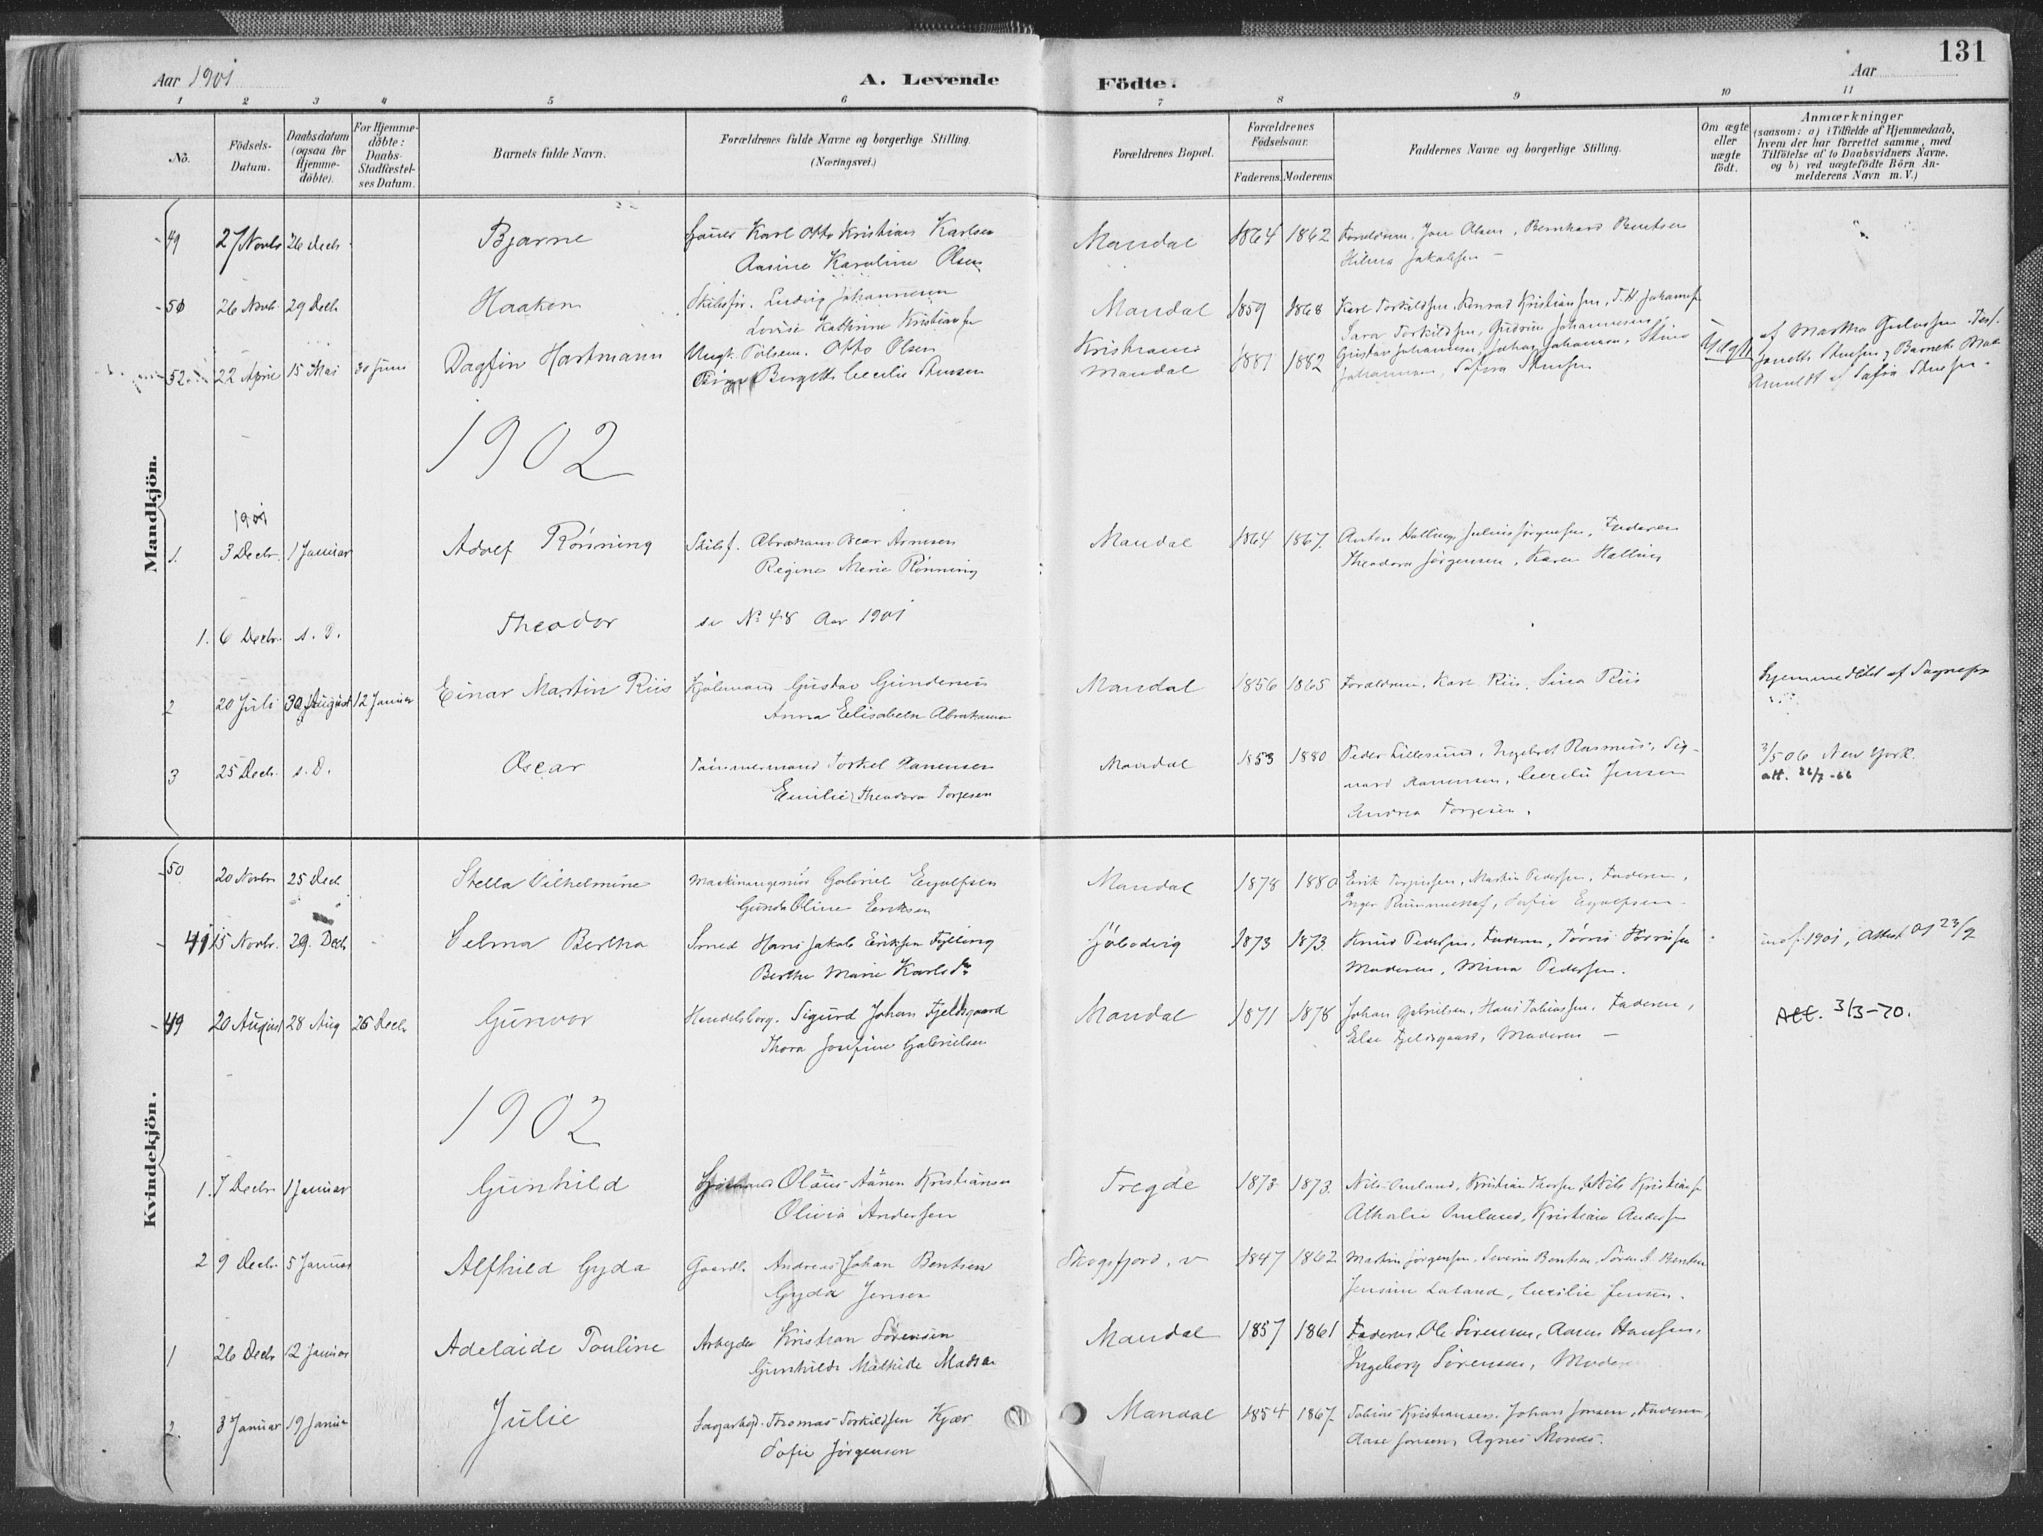 131
Aar 1901
A. Levende
Födte.
Aar
1 2 3 4 5 6 7 8 9 10 11
No.
Födsels-Datum.
Daabsdatum (ogsaa for Hjemme-döbte).
For Hjemme-döbte: Daabs-Stadfæstel-ses Datum.
Barnets fulde Navn.
Forældrenes fulde Navne og borgerlige Stilling. (Næringsvei.)
Forældrenes Bopæl.
Forældrenes Födselsaar.
Faderens. Moderens.
Faddernes Navne og borgerlige Stilling.
Om ægte eller uægte födt.
Anmærkninger (saasom: a) i Tilfælde af Hjemmedaab, hvem der har forrettet samme, med Tilföielse af to Daabsvidners Navne, og b) ved uægtefödte Börn An-melderens Navn m. V.)
Mandkjön.
49 27 Novbr 26 Decbr Bjarne Karl Otto Kristian Karlsen Mandal 1864 1862 Forældrene, Olsen, Bernhard Bentsen
Aasine Karoline Olsen Hilma Jakobsen –
50 26 Novb 29 Decb Haakon Ludvig Johannesen Mandal 1859 1868 Karl Torkildsen, Konrad Kristiansen,
Lovise Kathrine Kristiansen Sara Torkildsen, Gudrun Johannesen
52 22 April 15 Mai 30 Juni Dagfin Hartmann Ungk. Otto Olsen Kristiania 1881 1882 Gustav Johannesen, Johan Johannesen, Stina Uægte af Martha
Pige Bergitte Cecilie Mandal Johannesen, Sofia
1902
1901
1. 3 Decbr. 1 Januar Adolf Rönning Skibsf. Abraham Oscar Arnesen Mandal 1864 1867. Anton Halling, Julius Jörgensen, Faderen
Regine Marie Rönning Theodora Jörgensen, Karen Halling
1. 6 Decbr. s. D. Theodor se No 48 Aar 1901
2 20 Juli 30 August 12 Januar Einar Martin Riis Gustav Gundersen Mandal 1856 1865 Forældrene, Karl Riis, Sina Riis Hjemmedöbt af
Anna Elisabeth Abrahamsen
3 25 Decb. s. D. Oscar Tömmermand Torkel Hanensen Mandal 1853 1880 Peder Lillesund, Ingebret Rasmus., Sig- 3/5 06 New York.
Emilie Theodora Torjesen Cecilie Jensen att. 26/7-66
Andrea Torjesen.
Kvindekjön.
50 20 Novbr 25 Decb Stella Vilhelmine Gabriel Eyolfsen Mandal 1878 1880 Erik Martin Pedersen, Faderen,
Gunda Oline Eriksen Inger Sofie Eyolfsen
41 15 Novbr. 29. Decb Selma Bertha Smed Hans Jakob Eriksen Fylling 1873 1873. Knud Pedersen, Faderen, 1901, Attest 23/9
Berthe Marie Karlsdr Moderen, Mina Pedersen.
49 20 August 28 Aug 26 Decb Gunvor Handelsborg. Sigurd Johan Fjeldsgaard Mandal 1871 1878 Johan Gabrielsen, Hans Tobiassen, Faderen, Att. 3/3-70.
Thora Josefine Gabrielsen Else Fjeldsgaard, Moderen –
1902
1. 7 Decbr. 1 Januar Gunhild Olaus Aanen Kristiansen Tregde 1873 1873. Kristian Nils Kristiansen
Olivia Andersen Athalie Kristian Andersen
2 9 Decbr. 5 Januar Alfhild Gyda Gaardb. Andreas Johan Bentsen Skogsfjord, v 1847 1862 Martin Jörgensen, Severin Bentsen, Sören A. Bentsen
Gyda Jensen Jensine Laland, Cecilie Jensen.
1 26 Decb 12 Januar Adelaide Pouline Arbeyder Kristian Sörensen Mandal 1857 1861 Faderen, Ole Sörensen, Hansen,
Gunhilde Mathilde Madsen Ingeborg Sörensen, Moderen
2. 3 Januar 19 Januar Julie Thomas Torkildsen Kjær Mandal 1854 1867. Tobias Kristiansen. Johan Jonsen, Faderen,
Sofie Jörgensen Aase Jonsen, Agnes